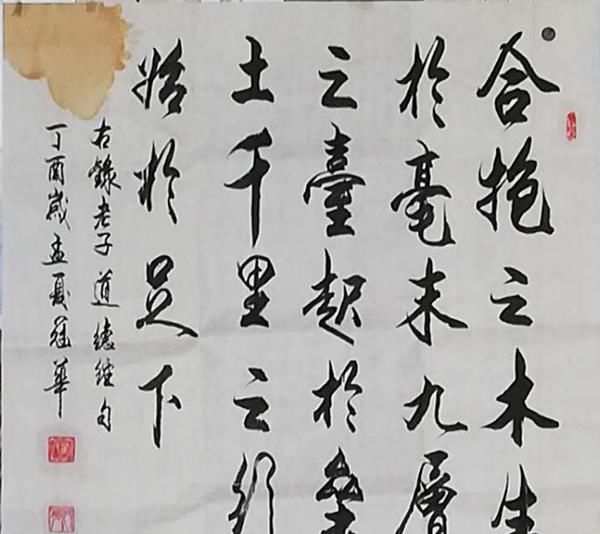 合抱之木生
於毫末九層
之臺起於壘
土千里之行
始於足下
右錄老子道德經句
丁酉歲孟夏冠華